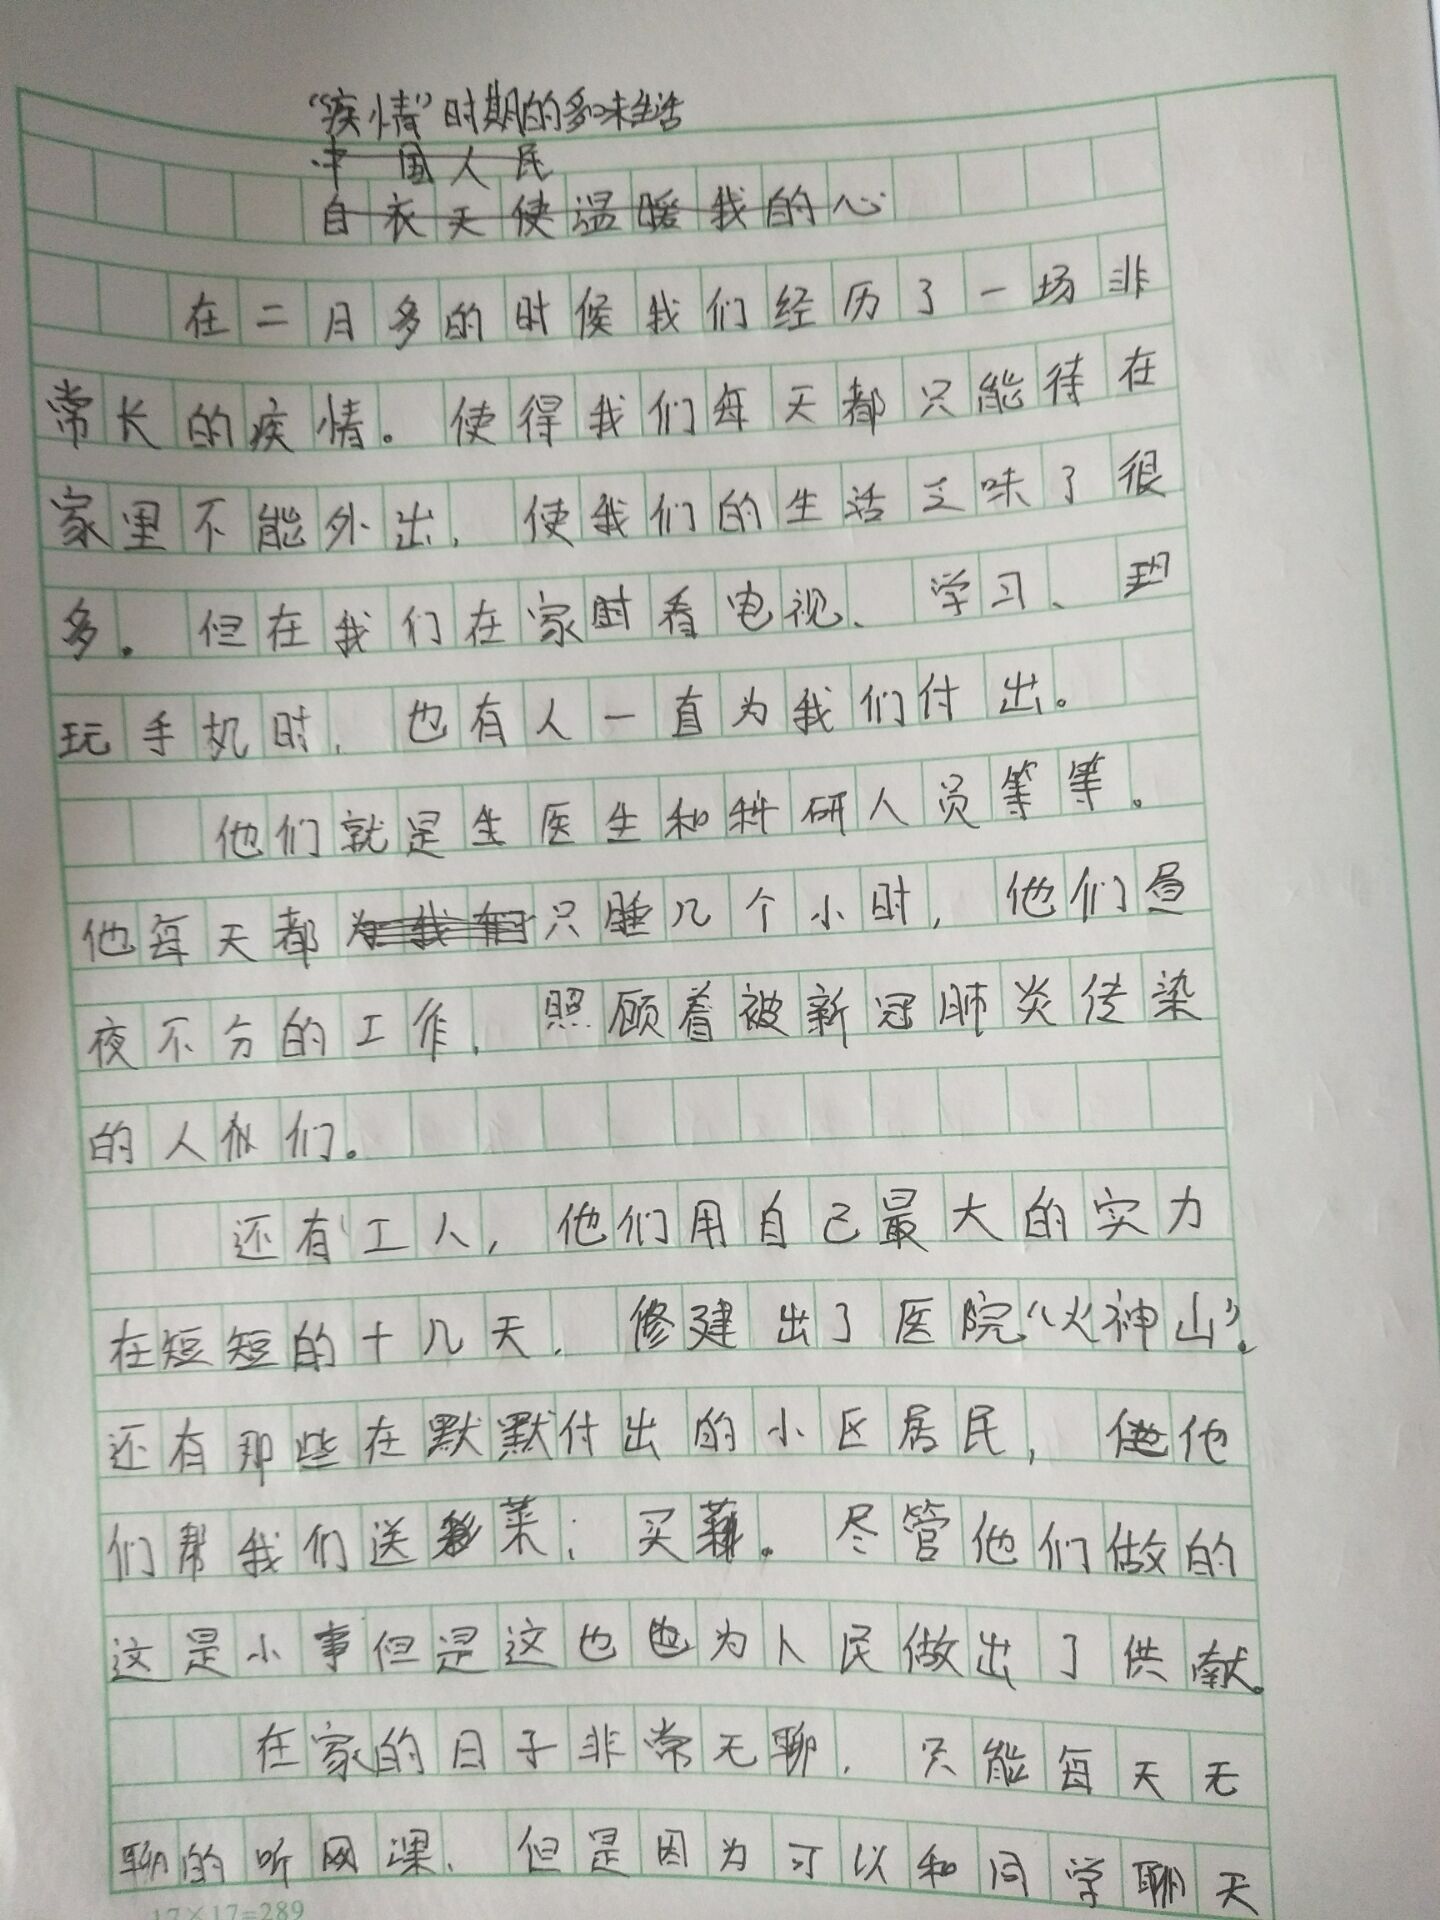 “疾情”时期的多味生活
中国人民
白衣天使温暖我的心
在二月多的时候我们经历了一场非
常长的疾情。使得我们每天都只能待在
家里不能外出，使我们的生活乏味了很
多。但在我们在家时看电视、学习、
玩手机时，也有人一直为我们付出。
他们就是生医生和科研人员等等。
他每天都只睡几个小时，他们昼
夜不分的工作，照顾着被新冠肺炎传染
的人们。
还有工人，他们用自己最大的实力
在短短的十几天，修建出了医院“火神山”。
还有那些在默默付出的小区居民，他
们帮我们送菜；买。尽管他们做的
这是小事但是这也也为人民做出了供献。
在家的日子非常无聊，只能每天无
聊的听网课，但是因为可以和同学聊天
17×17=289